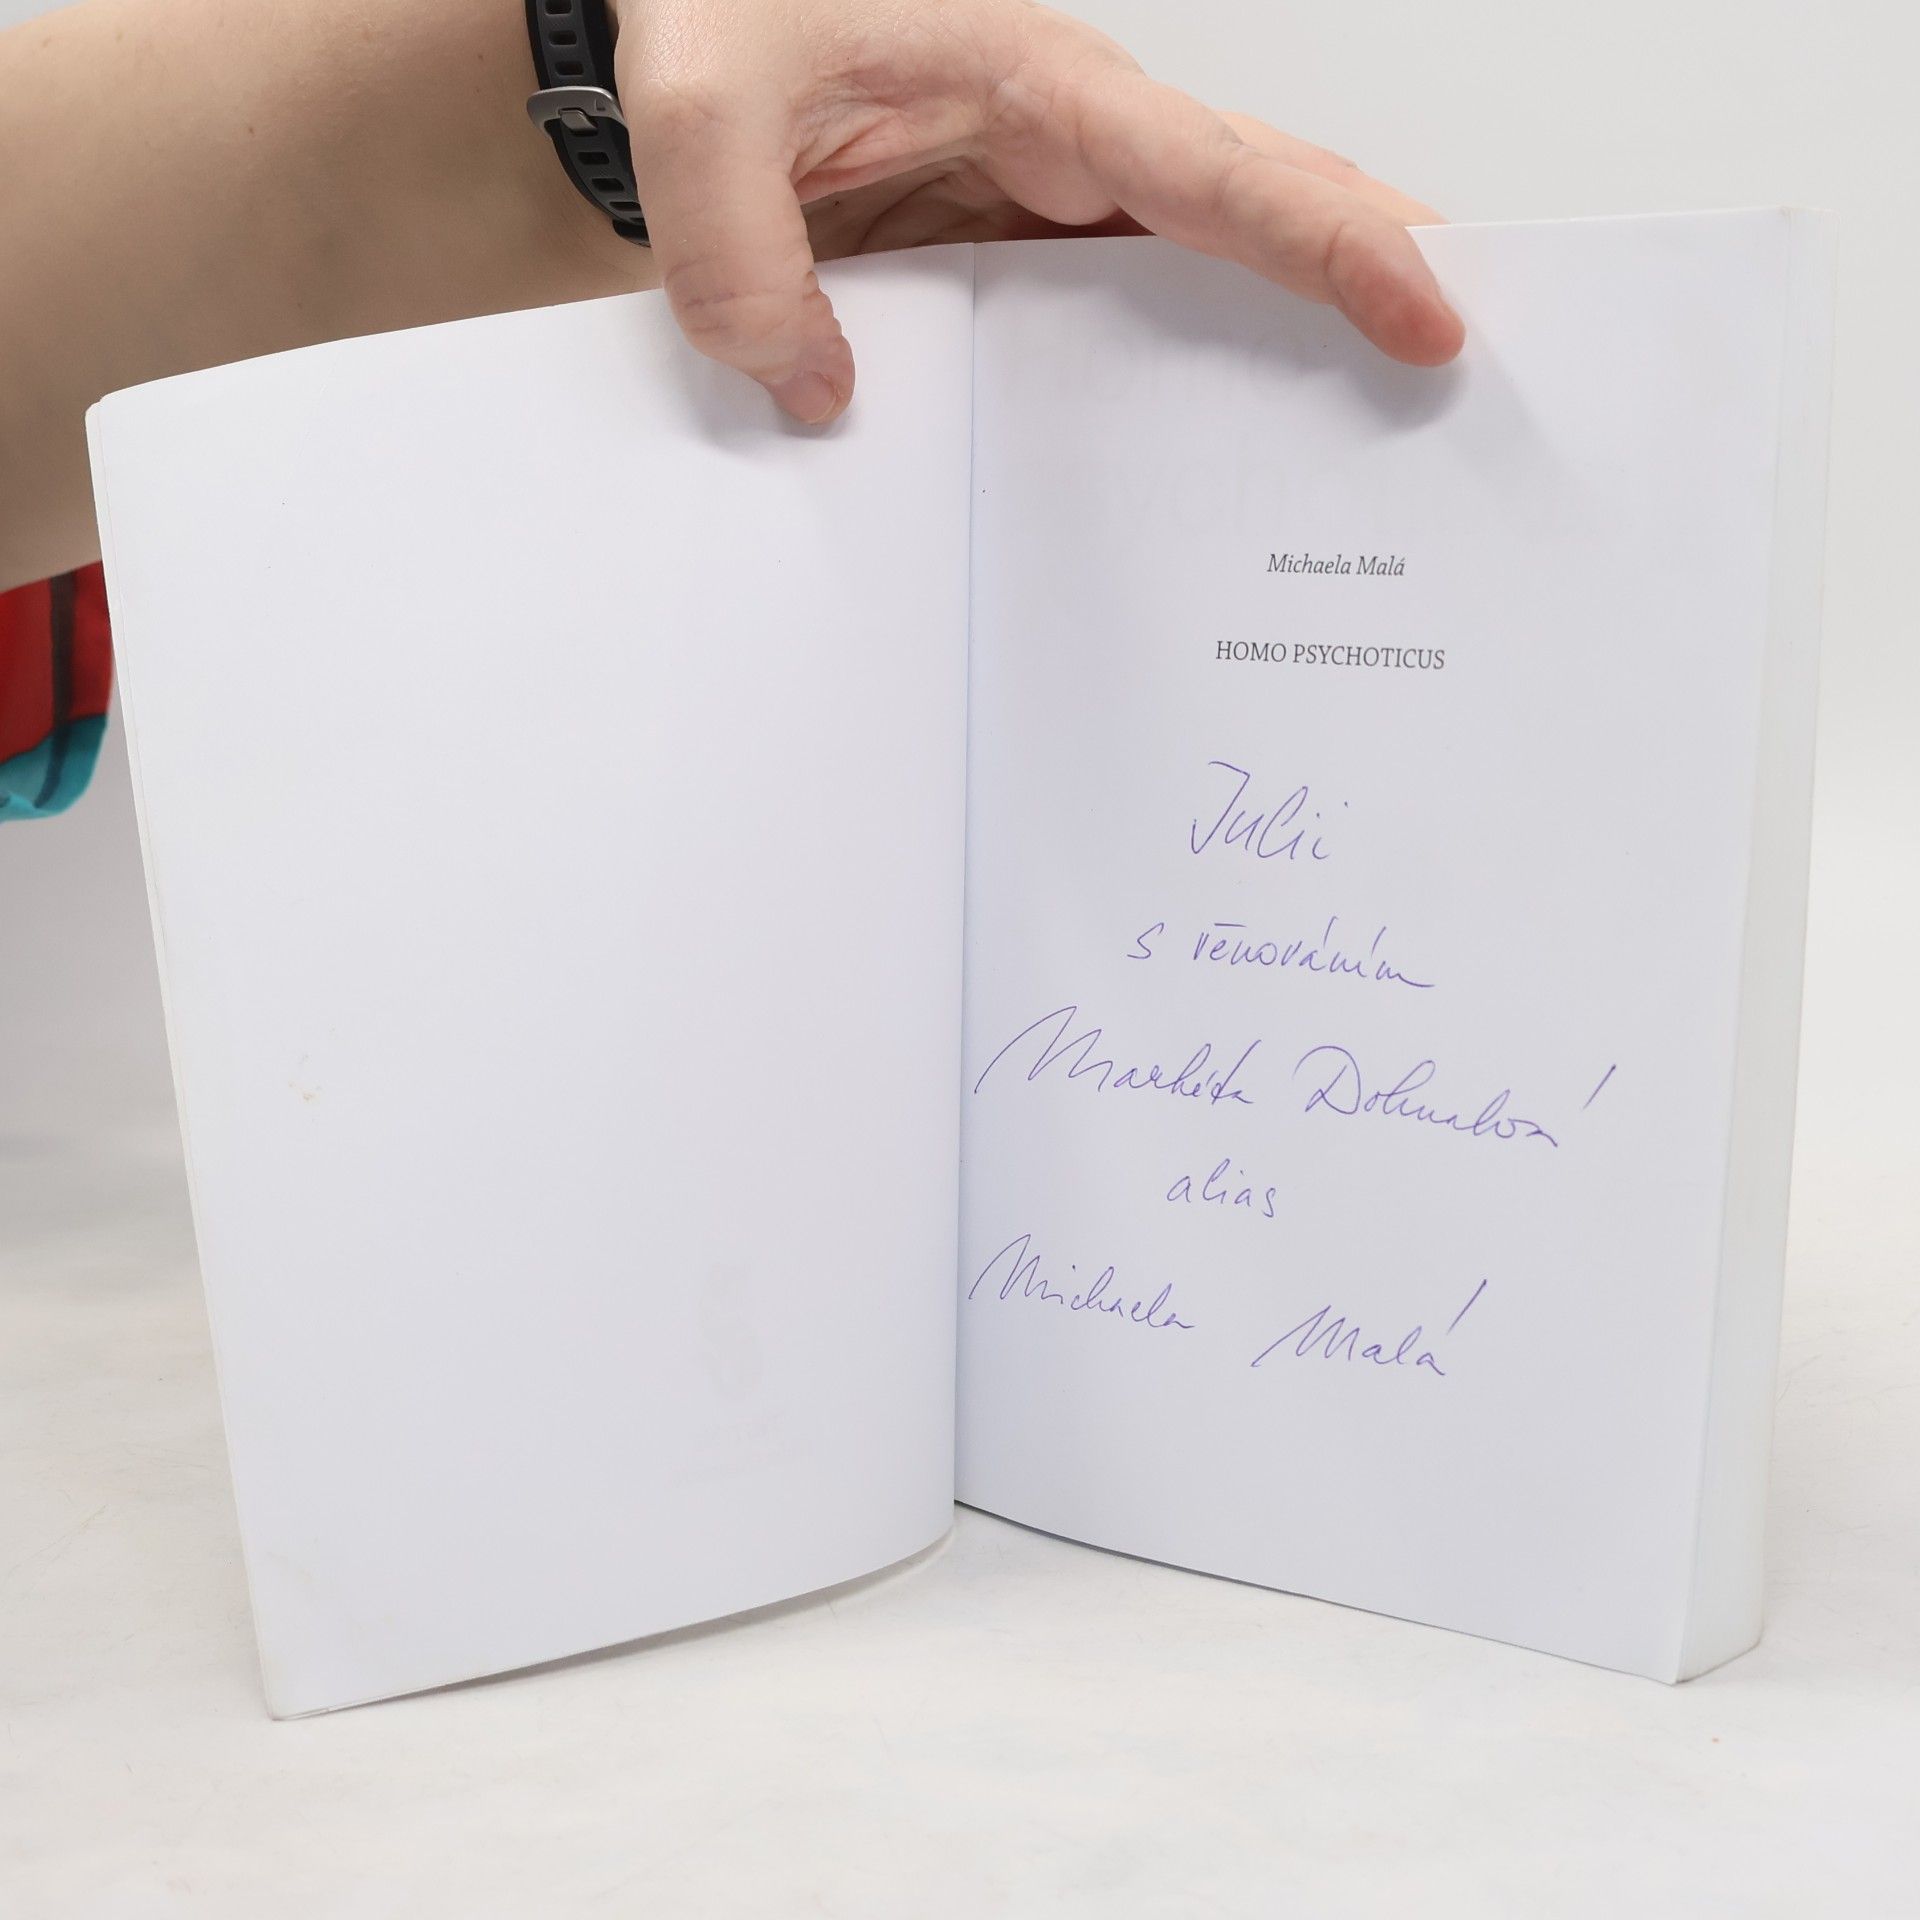 Michaela Malá
HOMO PSYCHOTICUS
Julii
s věnováním
Markéta Dohnalová
alias
Michaela Malá